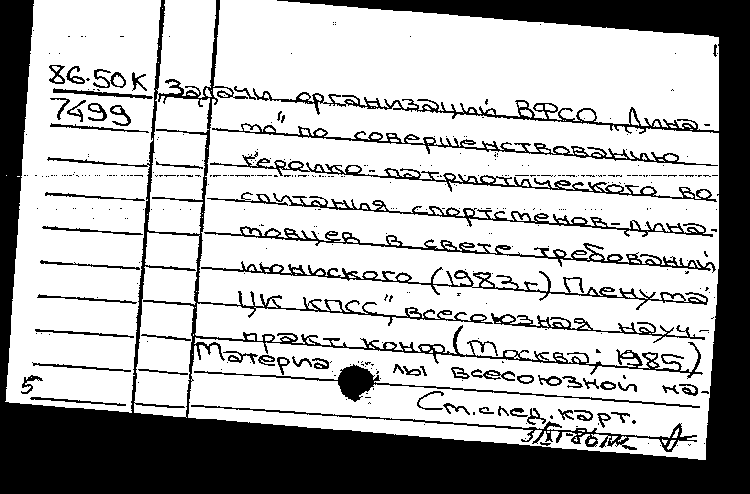 86-50К
7499
„Задачи организаций ВФСО „Дина-
мо" по совершенствованию
героико-патриотического во
спитания спортсменов-дина-
мовцев в свете требований
июньского (1983г.) Пленума
ЦК КПСС", всесоюзная науч.-
практ. конф. (Москва; 1985)
Материа лы всесоюзной на-
5
См. след. карт.
3/XI-86